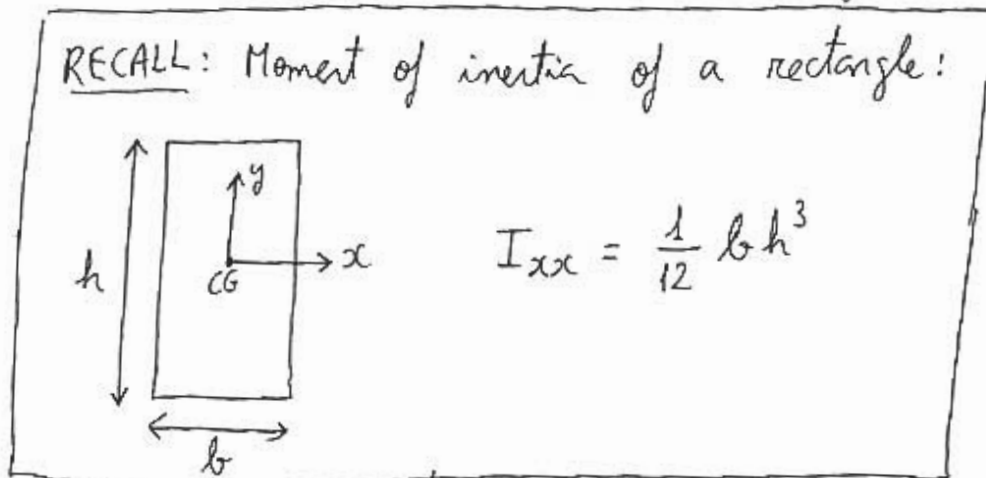 RECALL: Moment of inertia of a rectangle:
y
h
CG
x
I_xx = 1/12 b h^3
b